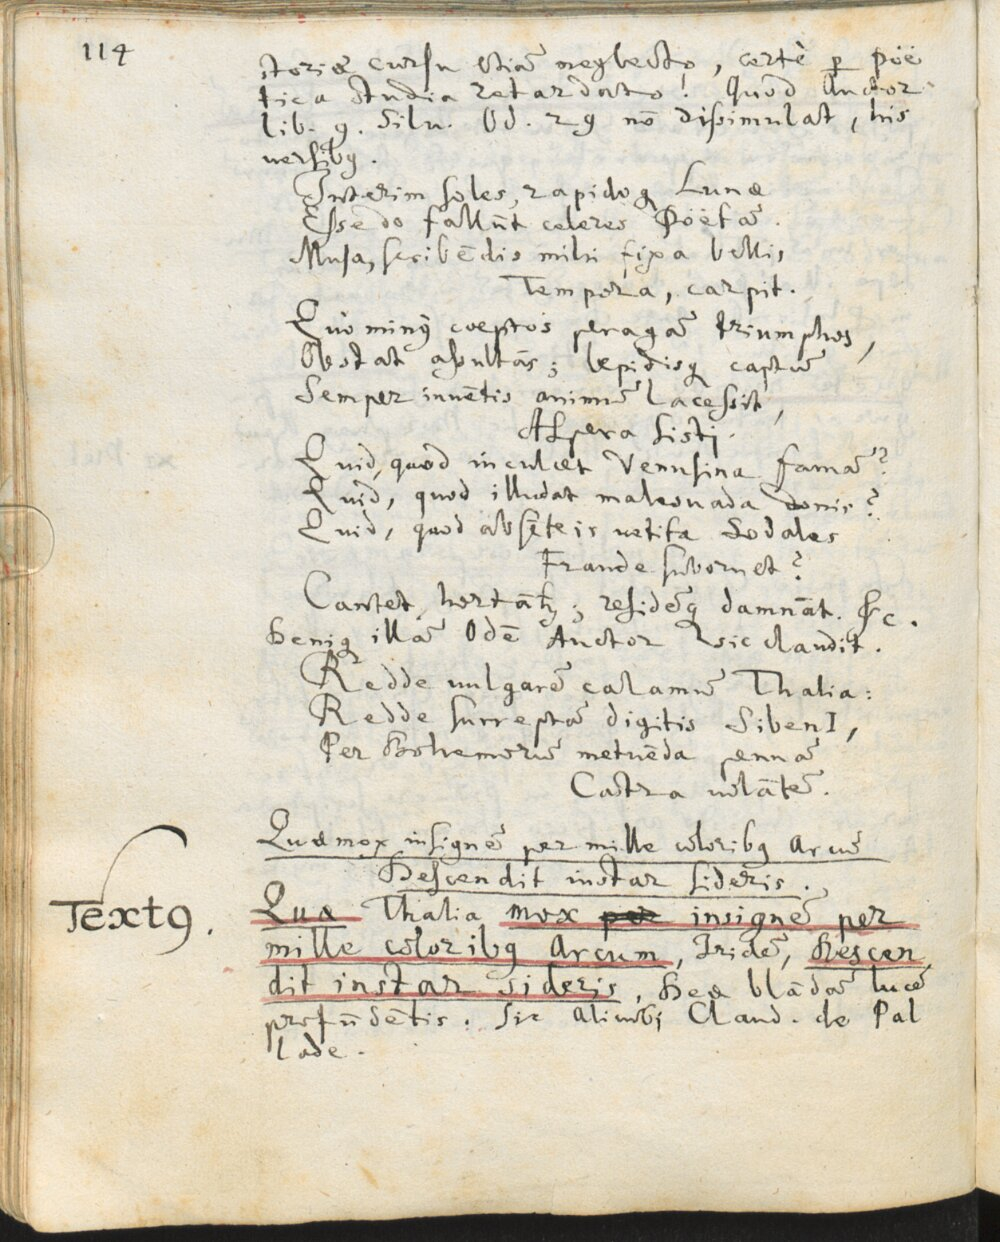 114
storiæ cursu etiā neglecto, certè ꝑ Poë
tica studia retardato! Quod Auctor
lib. 9. Silu. Od. 29 nō dißimulat, his
versibꝯ.
Interim soles, rapidoqꝫ Lunæ
Essedo fallūt celeres Poëtā.
Musa, scribēdis mihi fixa bellis
Tempora, carpit.
Quò minꝯ coeptos peragā triumphos,
Obstat absultās; lepidisqꝫ captū
Semper inuētis animū lacessit,
Aspera sisti.
Quid, quod inculcet Venusina famā?
Quid, quod illudat malesuada donis?
Quid, quod absēteis uetita Sodales
Fraude subornet?
Cantet, hortātꝫ; residēqꝫ damnāt. &c.
Deniqꝫ illā Odē Auctor sic claudit.
Redde uulgarē calamū Thalia:
Redde surreptā digitis SibenI,
Per Bohemorū metuēda pennā
Castra uolātē.
Quæ mox insignē per mille coloribꝯ Arcū
Descendit instar sideris.
Textꝯ.
Quæ Thalia mox per insignē per
mille coloribꝯ Arcum, Iridē, Descen
dit instar sideris, Deæ blādā lucē
profūdētis. Sic alicubi Claud. de Pal
lade.